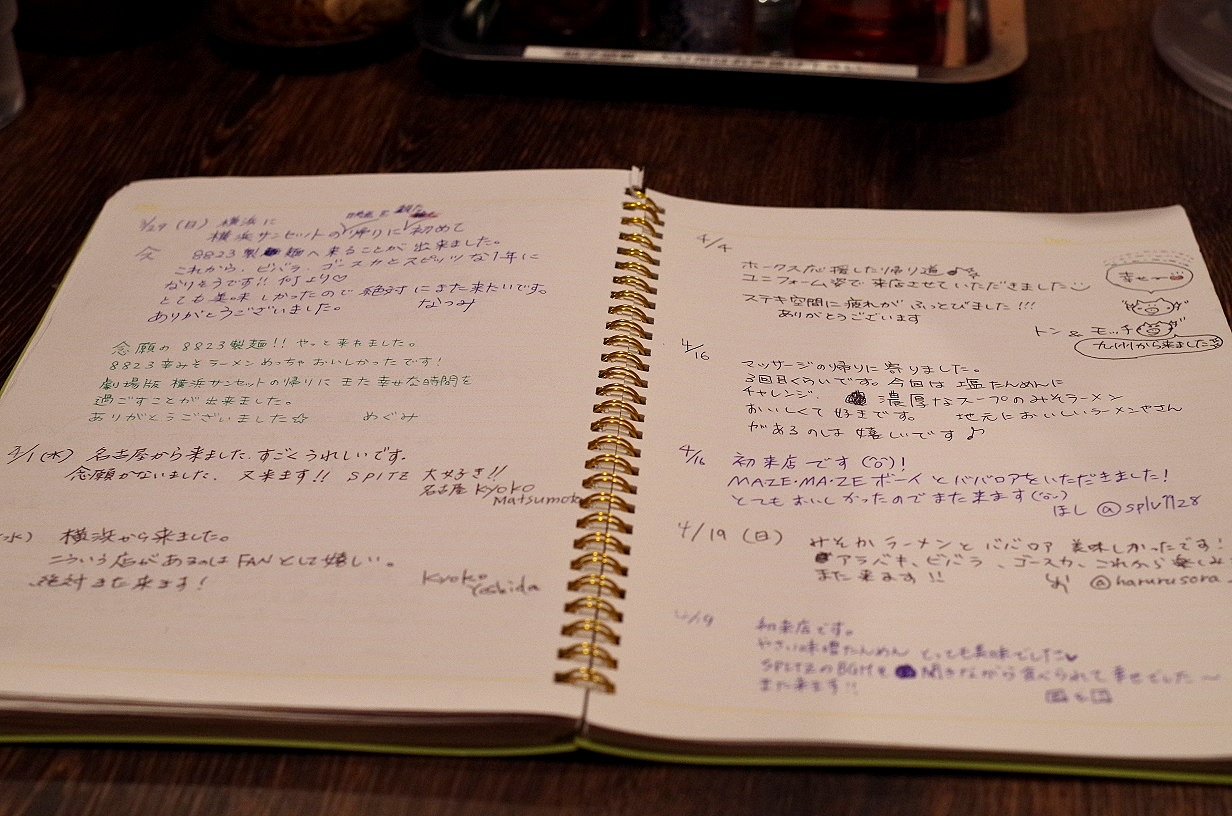 3/29 (日) 横浜に
横浜サンセットの帰りに初めて
映画を観た
今 8823製麺へ来ることが出来ました。
これから、ビバラ、ゴースカとスピッツな1年に
なりそうです!! 何より♡
とても美味しかったので絶対にまた来たいです。
ありがとうございました。 なつみ
念願の8823製麺!! やっと来れました。
8823辛みそラーメンめっちゃおいしかったです!
劇場版 横浜サンセットの帰りにまた幸せな時間を
過ごすことが出来ました。
ありがとうございました☆ めぐみ
/1(水) 名古屋から来ました。すごくうれしいです。
念願がかないました。又来ます!! SPITZ 大好き!!
名古屋 Kyoko
Matsumoto
水) 横浜から来ました。
こういう店があるのはFANとして嬉しい。
絶対また来ます!
Kyoko
Yoshida
4/4
ホークス応援した帰り道♪☆
ユニフォーム姿で来店させていただきました
ステキ空間に疲れがふっとびました!!!
ありがとうございます
幸せー
トン & モッチ
九州から来ました
4/16
マッサージの帰りに寄りました。
3回目くらいです。今回は塩たんめんに
チャレンジ。 濃厚なスープのみそラーメン
おいしくて好きです。 地元においしいラーメンやさん
があるのは嬉しいです♪
4/16 初来店です(^o^)!
MAZE・MA・ZEボーイとババロアをいただきました!
とてもおいしかったのでまた来ます
ほし @splv1128
4/19 (日) みそかラーメンとババロア 美味しかったです!
アラバキ、ビバラ、ゴースカ、これから楽しみ
また来ます!! @harurusora
4/19 初来店です。
やさい味噌たんめん とっても美味でした♥
SPITZのBGMを聞きながら食べられて幸せでした〜
また来ます!!